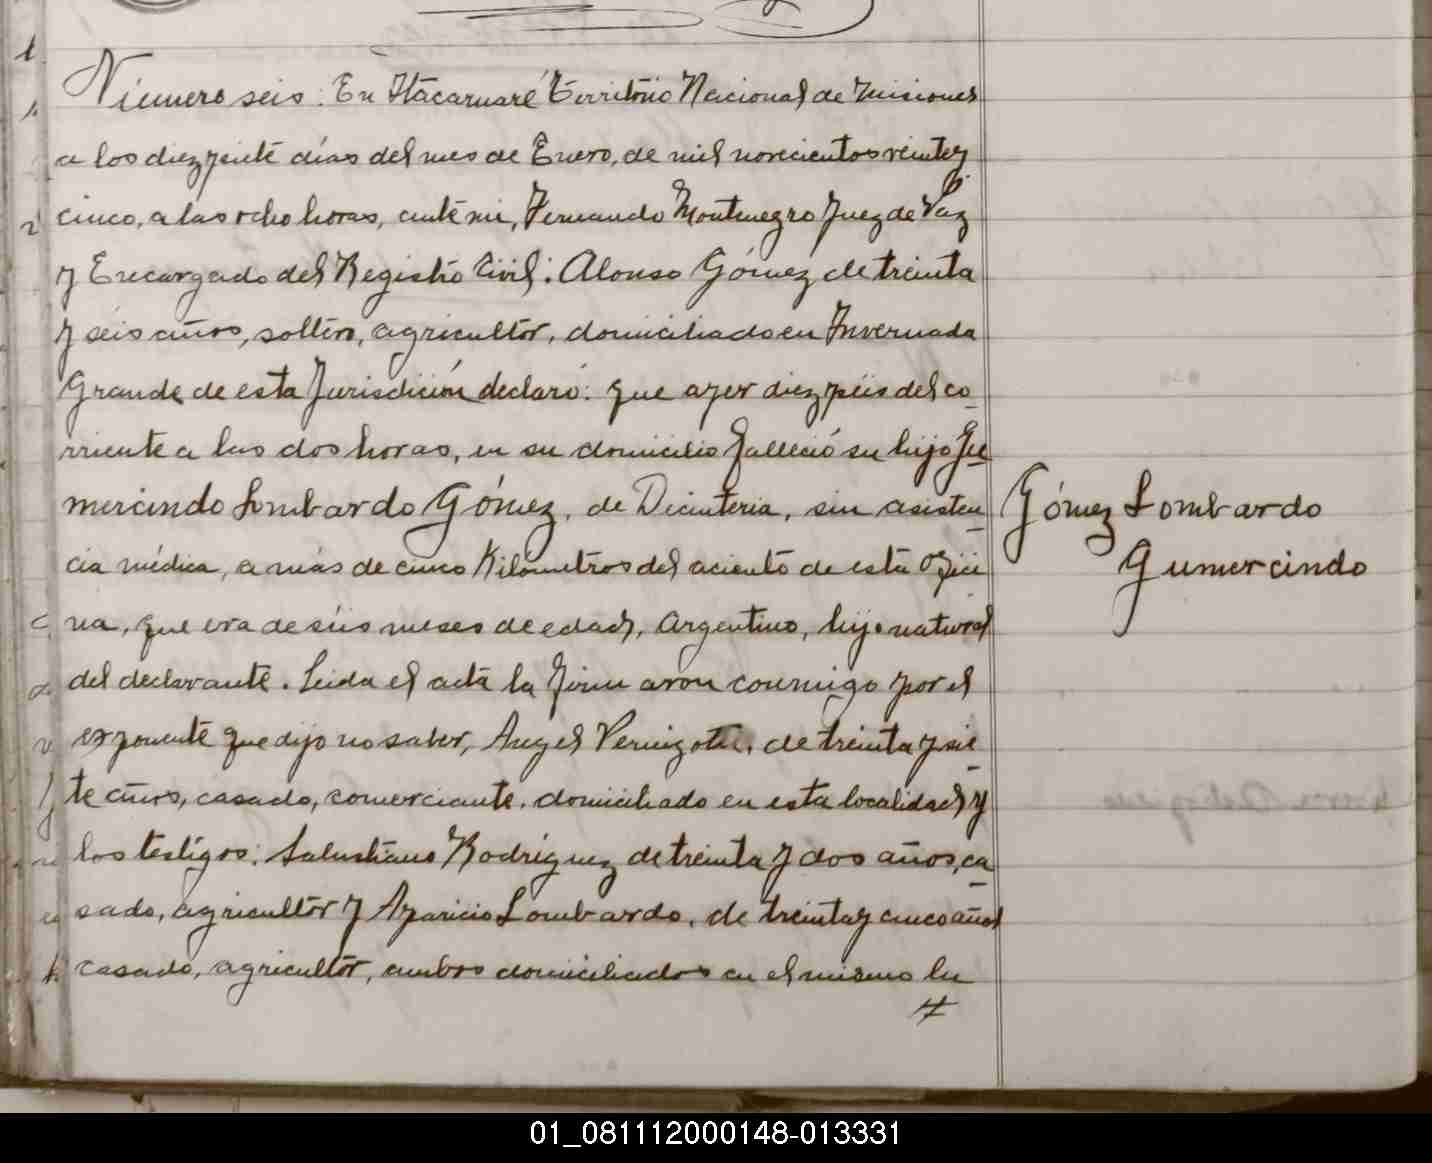 Número seis: En Itacaruaré Territorio Nacional de Misiones
a los diez y siete días del mes de Enero, de mil novecientos veinte y
cinco, a las ocho horas, ante mi, Fernando Montenegro Juez de Paz
y Encargado del Registro Civil: Alonso Gómez de treinta
y seis años, soltero, agricultor, domiciliado en Invernada
Grande de esta Jurisdición declaró: que ayer diez y seis del co-
rriente a las dos horas, en su domicilio falleció su hijo Gu-
mercindo Lombardo Gómez, de Dicinteria, sin asisten-
cia médica, a más de cinco Kilometros del aciento de esta ofici-
na, que era de seis meses de edad, Argentino, hijo natural
del declarante. Leida el acta la firmaron conmigo por el
exponente que dijo no saber, Angel de treinta y sie-
te años, casado, comerciante, domiciliado en esta localidad y
los testigos: Salustiano Rodríguez de treinta y dos años, ca-
sado, agricultor y Aparicio Lombardo, de treinta y cinco años
casado, agricultor, ambos domiciliados en el mismo lu
Gómez Lombardo
Gumercindo
01_081112000148-013331